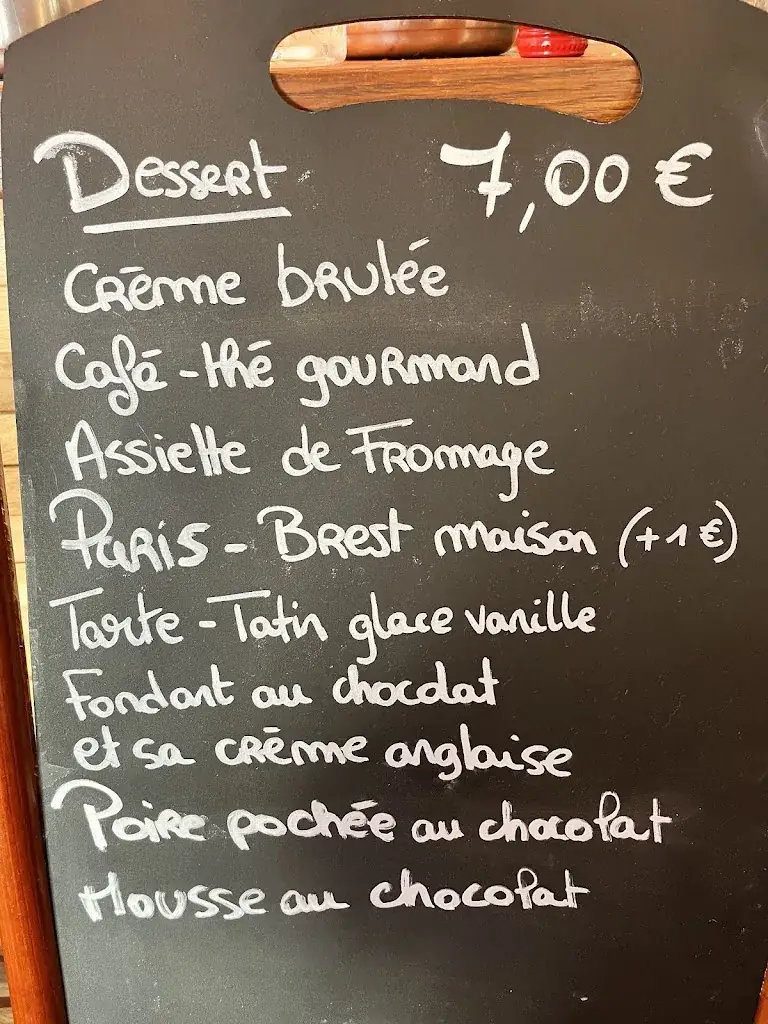 Dessert 7,00 €
Crème brulée
Café-thé gourmand
Assiette de Fromage
Paris-Brest maison (+1€)
Tarte-Tatin glace vanille
Fondant au chocolat
et sa crème anglaise
Poire pochée au chocolat
Mousse au chocolat